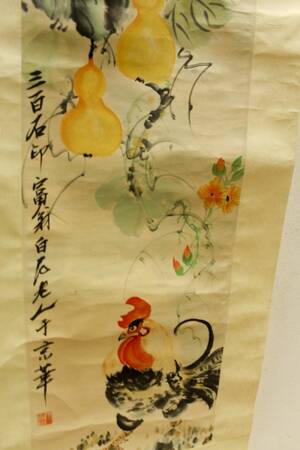 三百石印富翁白石老人于京华